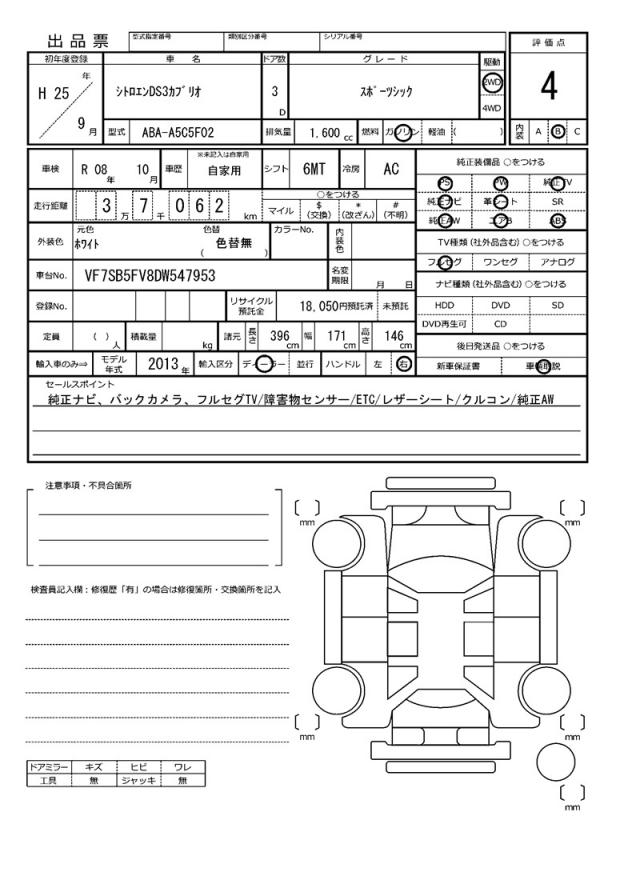 出品票 型式指定番号 類別区分番号 シリアル番号 評価点
初年度登録 車名 ドア数 グレード 駆動
H 25 年 シトロエンDS3カブリオ 3 D スポーツシック 2WD 4
9 月 4WD
型式 ABA-A5C5F02 排気量 1.600 cc 燃料 ガソリン 軽油 ( ) 内装 A B C
車検 R 08 年 10 月 車歴 ※未記入は自家用 自家用 シフト 6MT 冷房 AC 純正装備品 ○をつける
PS PW 純正TV
走行距離 3 万 7 千 0 6 2 km ○をつける 純正ナビ 革シート SR
マイル $ (交換) * (改ざん) # (不明) 純正AW エアB ABS
外装色 元色 色替 カラーNo. 内装色 TV種類 (社外品含む) ○をつける
ホワイト ( 色替無 ) フルセグ ワンセグ アナログ
車台No. VF7SB5FV8DW547953 名変期限 月 日 ナビ種類 (社外品含む) ○をつける
登録No. リサイクル預託金 18,050円預託済 未預託 HDD DVD SD
DVD再生可 CD
定員 ( ) 人 積載量 kg 諸元 長さ 396 cm 幅 171 cm 高さ 146 cm 後日発送品 ○をつける
輸入車のみ⇒ モデル年式 2013 年 輸入区分 ディーラー 並行 ハンドル 左 右 新車保証書 車輌取説
セールスポイント
純正ナビ、バックカメラ、フルセグTV/障害物センサー/ETC/レザーシート/クルコン/純正AW
注意事項・不具合箇所
mm mm
検査員記入欄：修復歴「有」の場合は修復箇所・交換箇所を記入
mm mm
ドアミラー キズ ヒビ ワレ
工具 無 ジャッキ 無
mm